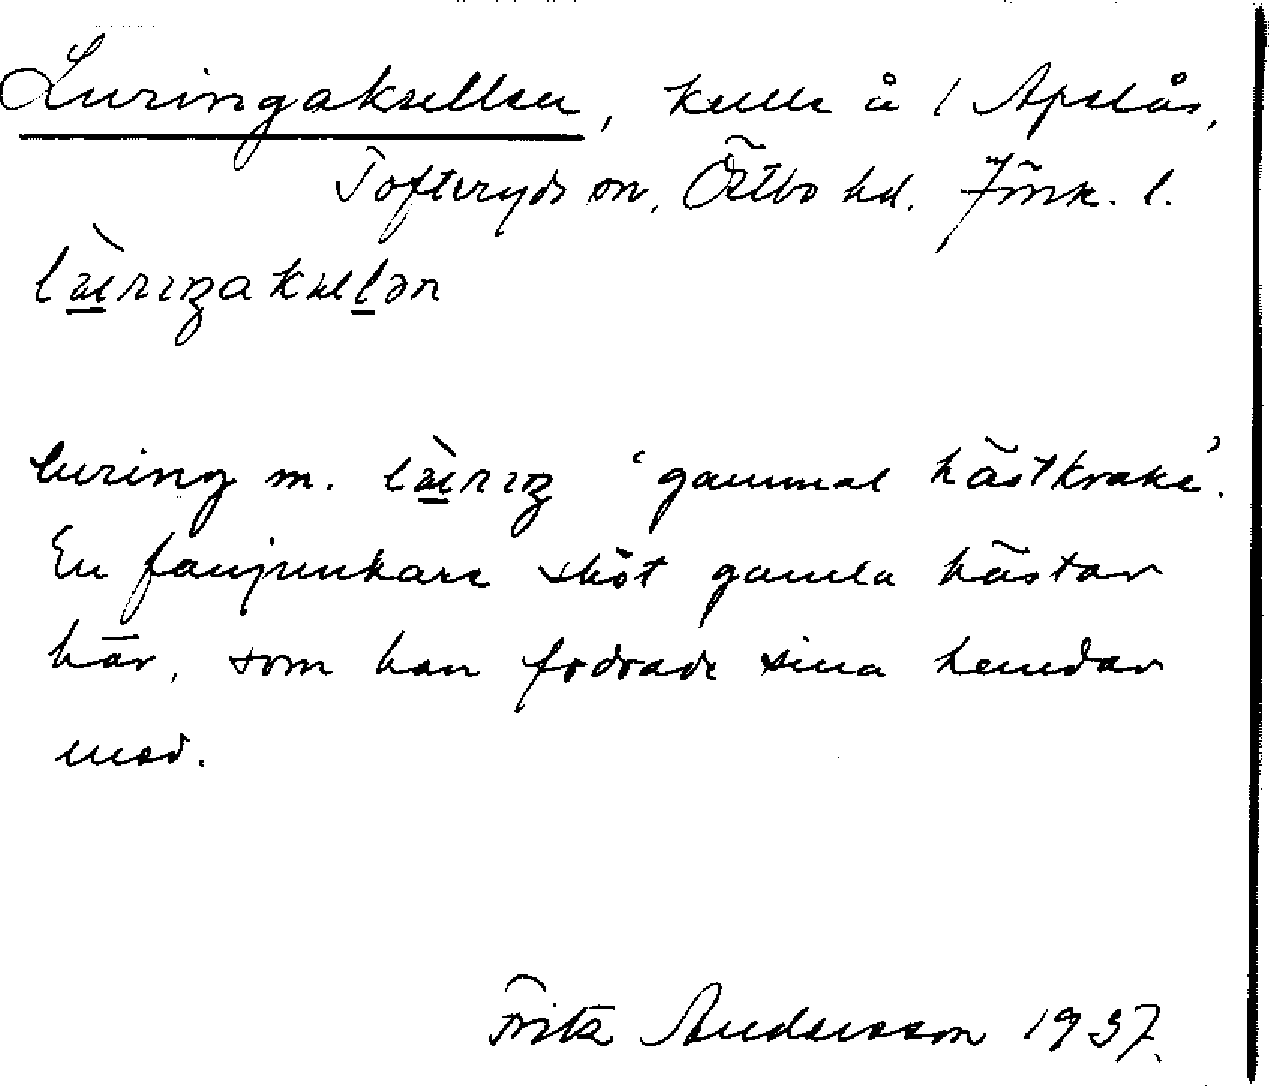 Luringakullen, kulle å 1 Apelås,
Tofteryds sn, Östbo hd. Jönk. l.
luring m. 'gammal hästkrake'.
En fanjunkare sköt gamla hästar
här, som han fodrade sina hundar
med.
Fritz Andersson 1937.